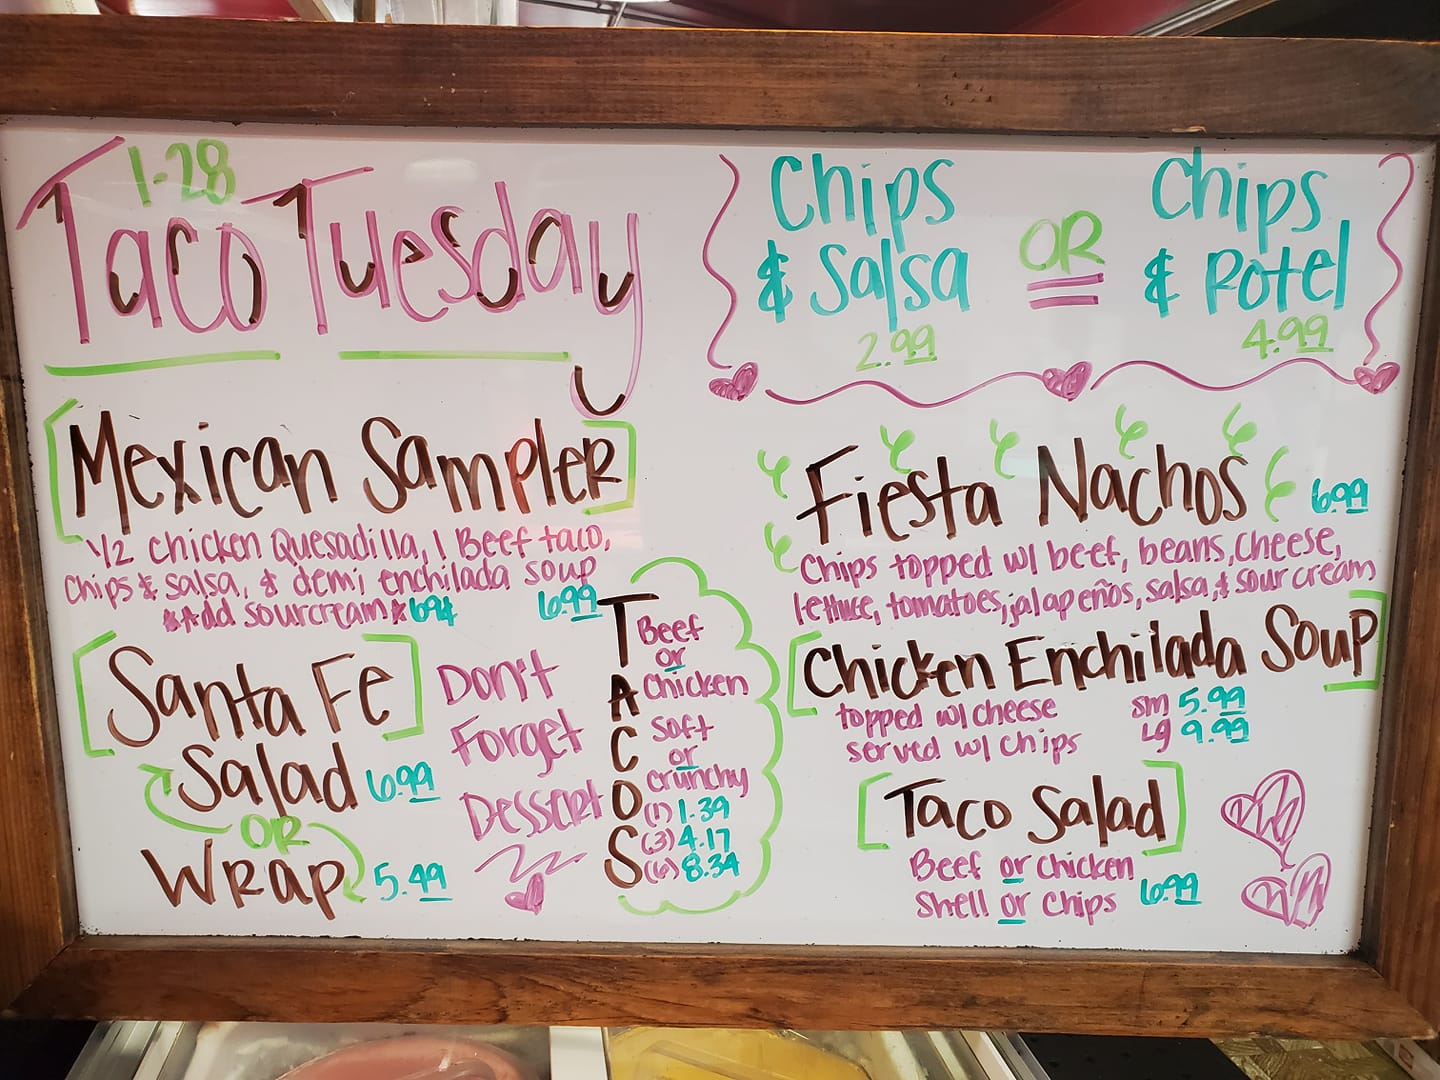 1-28
Taco Tuesday
Chips
& Salsa
2.99
OR
Chips
& Rotel
4.99
Mexican Sampler
1/2 Chicken Quesadilla, 1 Beef taco,
Chips & Salsa, & demi enchilada soup
**Add sourcream* 69¢ 6.99
Santa Fe
Salad 6.99
OR
Wrap 5.49
Don't
Forget
Dessert
TACOS
Beef
or
Chicken
Soft
or
Crunchy
(1) 1.39
(3) 4.17
(6) 8.34
Fiesta Nachos 6.99
Chips topped w/ beef, beans, cheese,
lettuce, tomatoes, jalapeños, salsa, & sour cream
Chicken Enchilada Soup
topped w/ cheese
served w/ chips
Sm 5.99
Lg 9.99
Taco Salad
Beef or Chicken
Shell or Chips 6.99